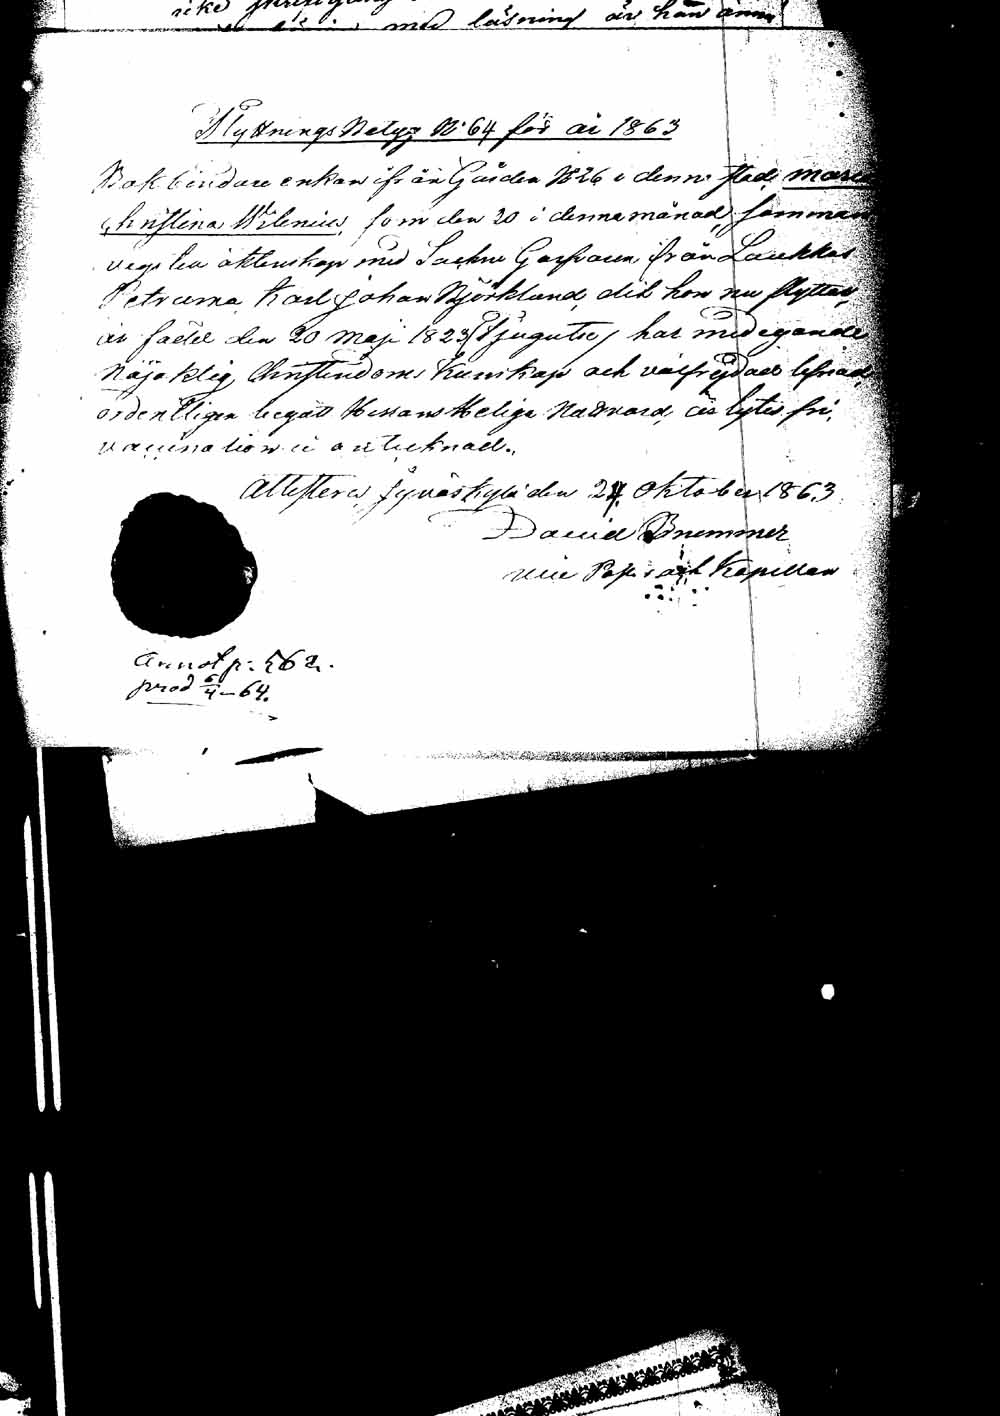 med läsning är han ännu
Flyttnings Betyg No 64 för år 1863
Bokbindare enkan ifrån Gården No 26 i denna stad, Maria
Christina Wilenius, som den 20 i denna månad, samman
vigts i äktenskap med Sadelm från Laukkas
Petruma Karl Johan Björklund, dit hon nu flyttar,
är född den 20 Maji 1823 (Tjugutre) har med egande
Nöjaklig Christendoms Kunskap och välfrejdad lefnad,
ordentligen begått Herrans Heliga Nattvard, är lytes fri,
vaccination ej antecknad.
Attesteras Jyväskylä den 24 Oktober 1863
David Brummer
vice Past. och Kapellan
Annot p: 562.
prod 6/4 - 64.